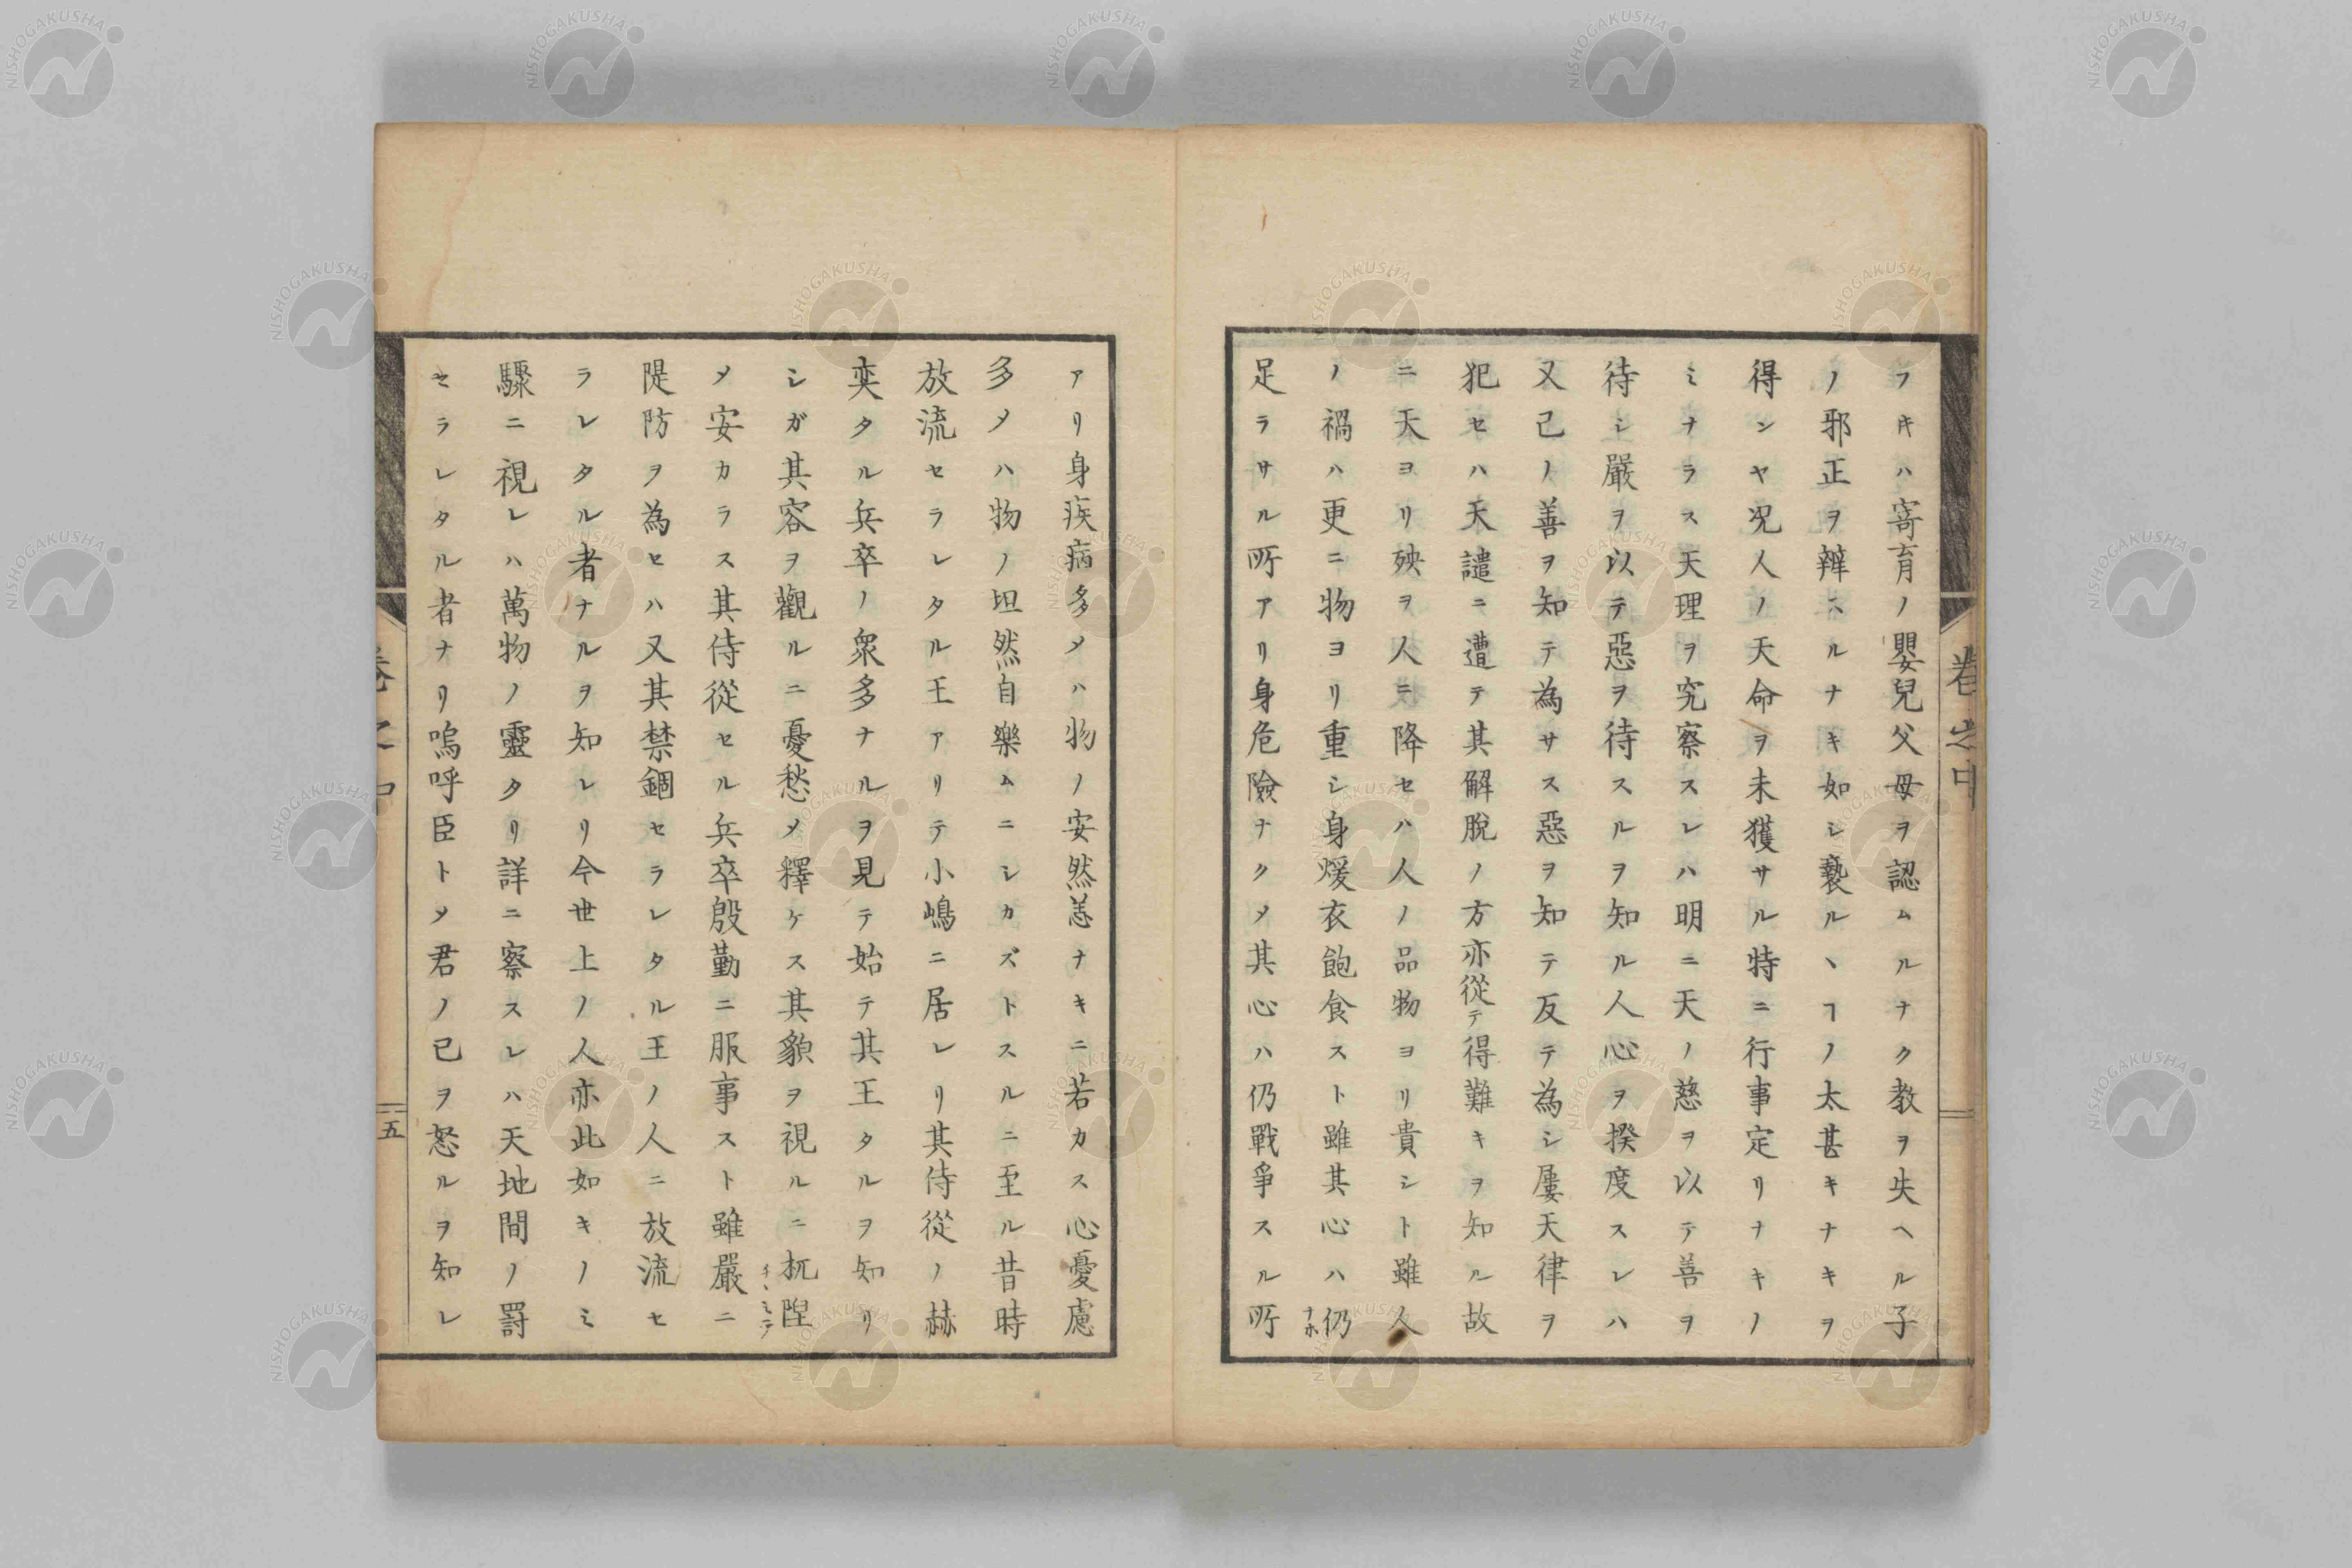 フキハ寄育ノ嬰兒父母ヲ認ムルナク教ヲ失ヘル子
ノ邪正ヲ辯ヘルナキ如シ褻ルヽヿノ太甚キナキヲ
得ンヤ况人ノ天命ヲ未獲サル特ニ行事定リナキノ
ミナラス天理ヲ究察スレハ明ニ天ノ慈ヲ以テ善ヲ
待シ嚴ヲ以テ惡ヲ待スルヲ知ル人心ヲ揆度スレハ
又己ノ善ヲ知テ為サス惡ヲ知テ反テ為シ屢天律ヲ
犯セハ天譴ニ遭テ其解脫ノ方亦從テ得難キヲ知ル故
ニ天ヨリ殃ヲ人ニ降セハ人ノ品物ヨリ貴シト雖人
ノ禍ハ更ニ物ヨリ重シ身煖衣飽食スト雖其心ハ仍ナホ
足ラサル所アリ身危險ナクメ其心ハ仍戰爭スル所
卷之中
アリ身疾病多メハ物ノ安然恙ナキニ若カス心憂慮
多メハ物ノ坦然自樂ムニシカズトスルニ至ル昔時
放流セラレタル王アリテ小嶋ニ居レリ其侍從ノ赫
奕タル兵卒ノ衆多ナルヲ見テ始テ其王タルヲ知リ
シガ其容ヲ觀ルニ憂愁メ釋ケス其貌ヲ視ルニ杌隉
メ安カラス其侍從セル兵卒殷勤ニ服事スト雖嚴ニ
隄防ヲ為セハ又其禁錮セラレタル王ノ人ニ放流セ
ラレタル者ナルヲ知レリ今世上ノ人亦此如キノミ
驟ニ視レハ萬物ノ靈タリ詳ニ察スレハ天地間ノ罰
セラレタル者ナリ嗚呼臣トメ君ノ已ヲ怒ルヲ知レ
卷之中
五
NISHOGAKUSHA